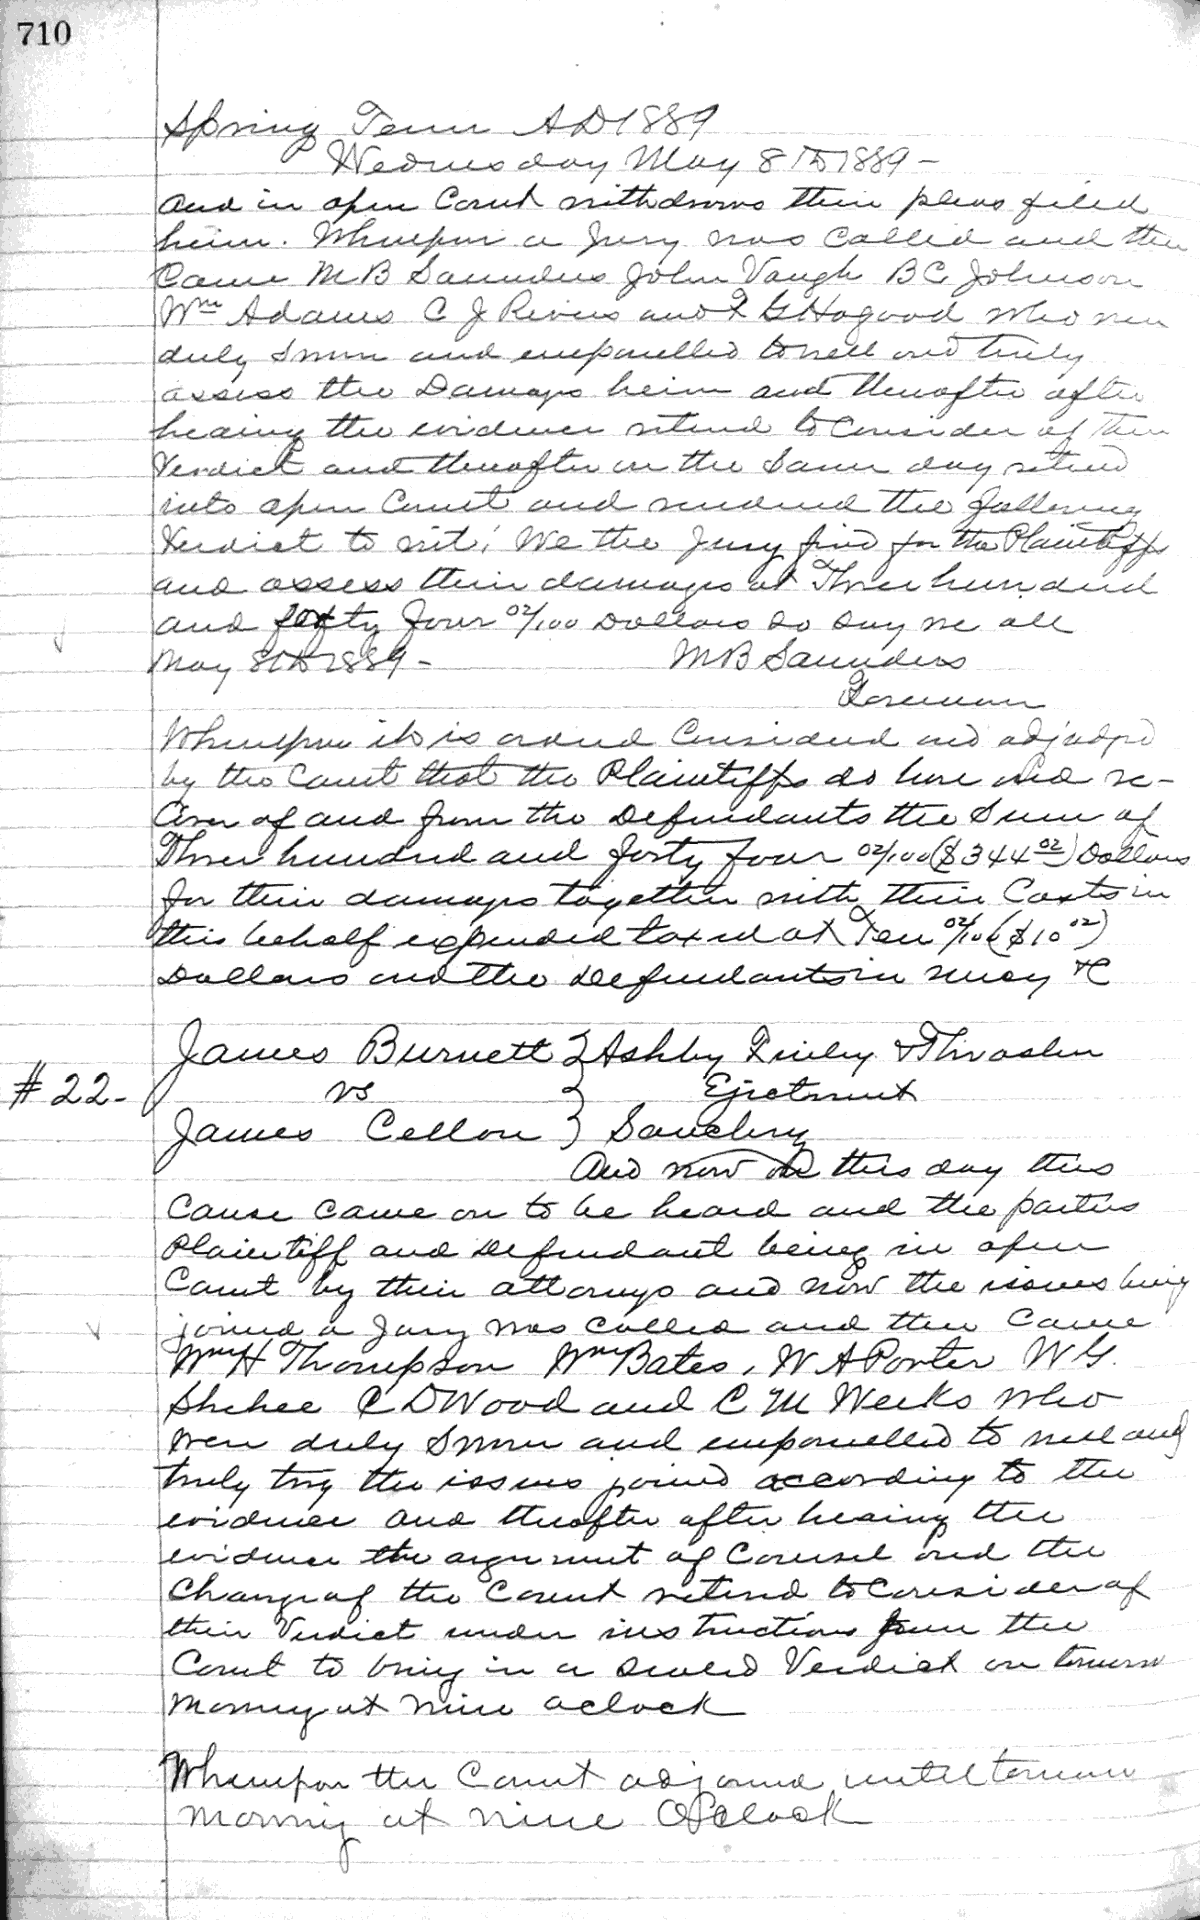 710
Spring Term AD 1889
Wednesday May 8th 1889 -
and in open Court withdraws their pleas filed
herin. Whereupon a Jury was called and then
Came M B Saunders John Vaugh B C Johnson
Wm Adams C J Rivers and F G Hagood who were
duly sworn and empanelled to well and truly
assess the Damages herin and thereafter after
hearing the evidence retired to Consider of their
Verdict and thereafter on the same day retired
into open Court and rendered the following
Verdict to wit; We the Jury find for the Plaintiffs
and assess their damages at Three hundred
and forty four 02/100 Dollars So Say we all
May 8th 1889 - M B Saunders
Foreman
Whereupon it is ordered Considered and adjudged
by the Court that the Plaintiffs do have and re-
Cover of and from the Defendants the Sum of
Three hundred and forty four 02/100 ($344 02) Dollars
for their damages together with their Costs in
this behalf expended taxed at Ten 02/100 ($10 02)
Dollars and the Defendants in mercy &C
James Burnett } Ashby Finley & Thrasher
#22- vs } Ejectment
James Cellon }
And now on this day this
Cause came on to be heard and the parties
Plaintiff and Defendant being in open
Court by their attorneys and now the issues being
joined a Jury was called and then Came
Wm H Thompson Wm Bates, W A Porter W G.
Shehee C D Wood and C M Weeks who
were duly Sworn and empanelled to well and
truly try the issues joined according to the
evidence and theafter after hearing the
evidence the argument of Counsel and the
Charge of the Court retired to Consider of
their Verdict under instructions from the
Court to bring in a sealed Verdict on tomorrow
Morning at nine oclock
Whereupon the Court adjourned until tomorrow
morning at nine O'Clock